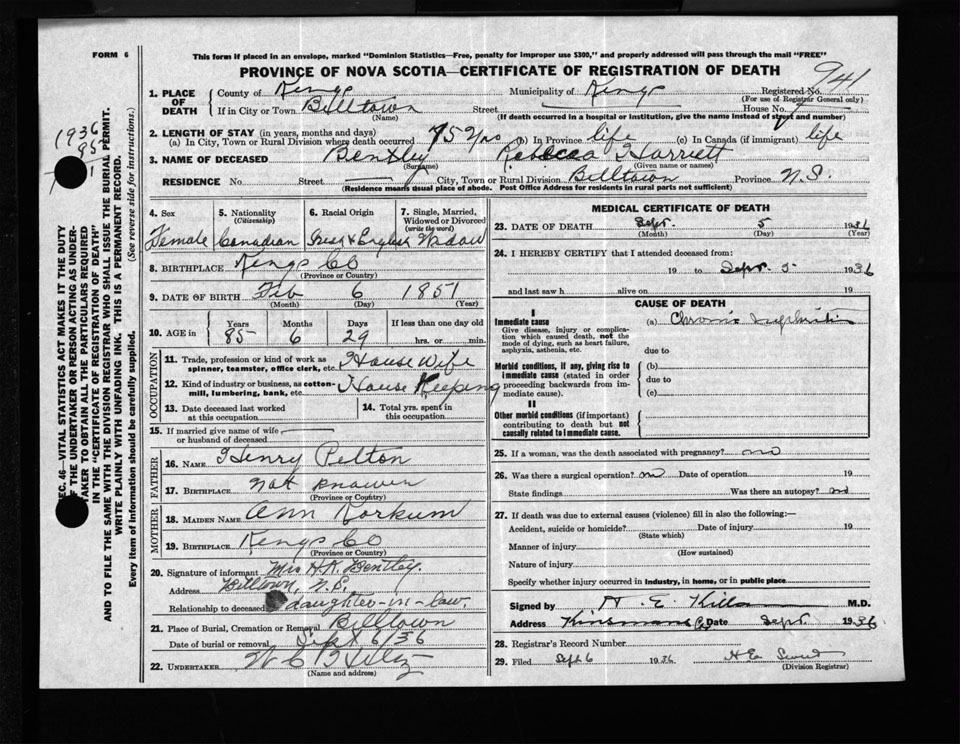 FORM 6
This form if placed in an envelope, marked "Dominion Statistics—Free, penalty for improper use $300," and properly addressed will pass through the mail "FREE"
PROVINCE OF NOVA SCOTIA—CERTIFICATE OF REGISTRATION OF DEATH
941
1. PLACE OF DEATH County of Kings Municipality of Kings Registered No.
(For use of Registrar General only)
If in City or Town Billtown Street House No.
(Name) (If death occurred in a hospital or institution, give the name instead of street and number)
2. LENGTH OF STAY (in years, months and days)
(a) In City, Town or Rural Division where death occurred 75 yrs (b) In Province life (c) In Canada (if immigrant) life
3. NAME OF DECEASED Bentley Rebecca Harriett
(Surname) (Given name or names)
RESIDENCE No. Street City, Town or Rural Division Billtown Province N.S.
(Residence means usual place of abode. Post Office Address for residents in rural parts not sufficient)
1936
952
SEC. 46—VITAL STATISTICS ACT MAKES IT THE DUTY
OF THE UNDERTAKER OR PERSON ACTING AS UNDER-
TAKER TO OBTAIN ALL THE PARTICULARS REQUIRED
IN THE "CERTIFICATE OF REGISTRATION OF DEATH"
AND TO FILE THE SAME WITH THE DIVISION REGISTRAR WHO SHALL ISSUE THE BURIAL PERMIT.
WRITE PLAINLY WITH UNFADING INK. THIS IS A PERMANENT RECORD.
Every item of information should be carefully supplied. (See reverse side for instructions.)
4. Sex 5. Nationality (Citizenship) 6. Racial Origin 7. Single, Married, Widowed or Divorced (write the word)
Female Canadian Irish & English Widow
8. BIRTHPLACE Kings Co
(Province or Country)
9. DATE OF BIRTH Feb 6 1851
(Month) (Day) (Year)
10. AGE in Years Months Days If less than one day old
85 6 29 hrs. or min.
OCCUPATION
11. Trade, profession or kind of work as spinner, teamster, office clerk, etc. House Wife
12. Kind of industry or business, as cotton-mill, lumbering, bank, etc. House Keeping
13. Date deceased last worked at this occupation 14. Total yrs. spent in this occupation
15. If married give name of wife or husband of deceased
FATHER
16. NAME Henry Pelton
17. BIRTHPLACE not known
(Province or Country)
MOTHER
18. MAIDEN NAME Ann Korkum
19. BIRTHPLACE Kings Co
(Province or Country)
20. Signature of informant Mrs H.A. Bentley
Address Billtown, N.S.
Relationship to deceased daughter-in-law
21. Place of Burial, Cremation or Removal Billtown
Date of burial or removal Sept 6/36
22. UNDERTAKER
(Name and address)
MEDICAL CERTIFICATE OF DEATH
23. DATE OF DEATH Sept. 5 1936
(Month) (Day) (Year)
24. I HEREBY CERTIFY that I attended deceased from:
19 to Sept. 5 1936
and last saw h alive on 19
CAUSE OF DEATH
I
Immediate cause (a) Chronic Nephritis
Give disease, injury or complication which caused death, not the mode of dying, such as heart failure, asphyxia, asthenia, etc. due to
Morbid conditions, if any, giving rise to immediate cause (stated in order proceeding backwards from immediate cause). (b)
due to
(c)
II
Other morbid conditions (if important) contributing to death but not causally related to immediate cause.
25. If a woman, was the death associated with pregnancy? no
26. Was there a surgical operation? no Date of operation 19
State findings Was there an autopsy? no
27. If death was due to external causes (violence) fill in also the following:—
Accident, suicide or homicide? Date of injury 19
(State which)
Manner of injury
(How sustained)
Nature of injury
Specify whether injury occurred in industry, in home, or in public place
Signed by H. E. M.D.
Address Date Sept. 1936
28. Registrar's Record Number
29. Filed Sept 6 1936
(Division Registrar)